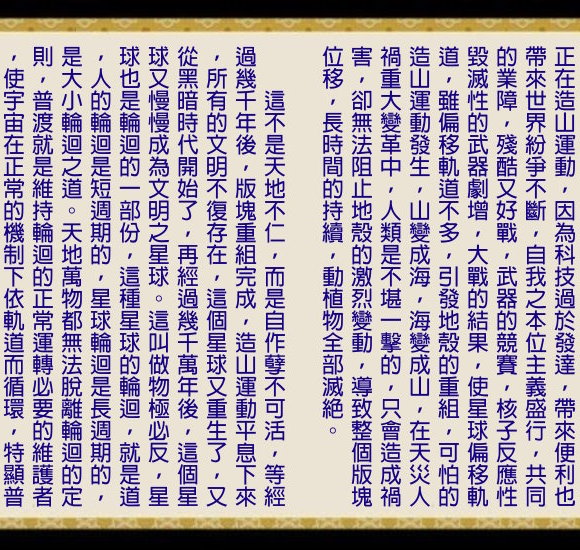 正在造山運動，因為科技過於發達，帶來便利也
帶來世界紛爭不斷，自我之本位主義盛行，共同
的業障，殘酷又好戰，武器的競賽，核子反應性
毀滅性的武器劇增，大戰的結果，使星球偏移軌
道，雖偏移軌道不多，引發地殼的重組，可怕的
造山運動發生，山變成海，海變成山，在天災人
禍重大變革中，人類是不堪一擊的，只會造成禍
害，卻無法阻止地殼的激烈變動，導致整個版塊
位移，長時間的持續，動植物全部滅絕。
這不是天地不仁，而是自作孽不可活，等經
過幾千年後，版塊重組完成，造山運動平息下來
，所有的文明不復存在，這個星球又重生了，又
從黑暗時代開始了，再經過幾千萬年後，這個星
球又慢慢成為文明之星球。這叫做物極必反，星
球也是輪迴的一部份，這種星球的輪迴，就是道
，人的輪迴是短週期的，星球輪迴是長週期的，
是大小輪迴之道。天地萬物都無法脫離輪迴的定
則，普渡就是維持輪迴的正常運轉必要的維護者
，使宇宙在正常的機制下依軌道而循環，特顯普